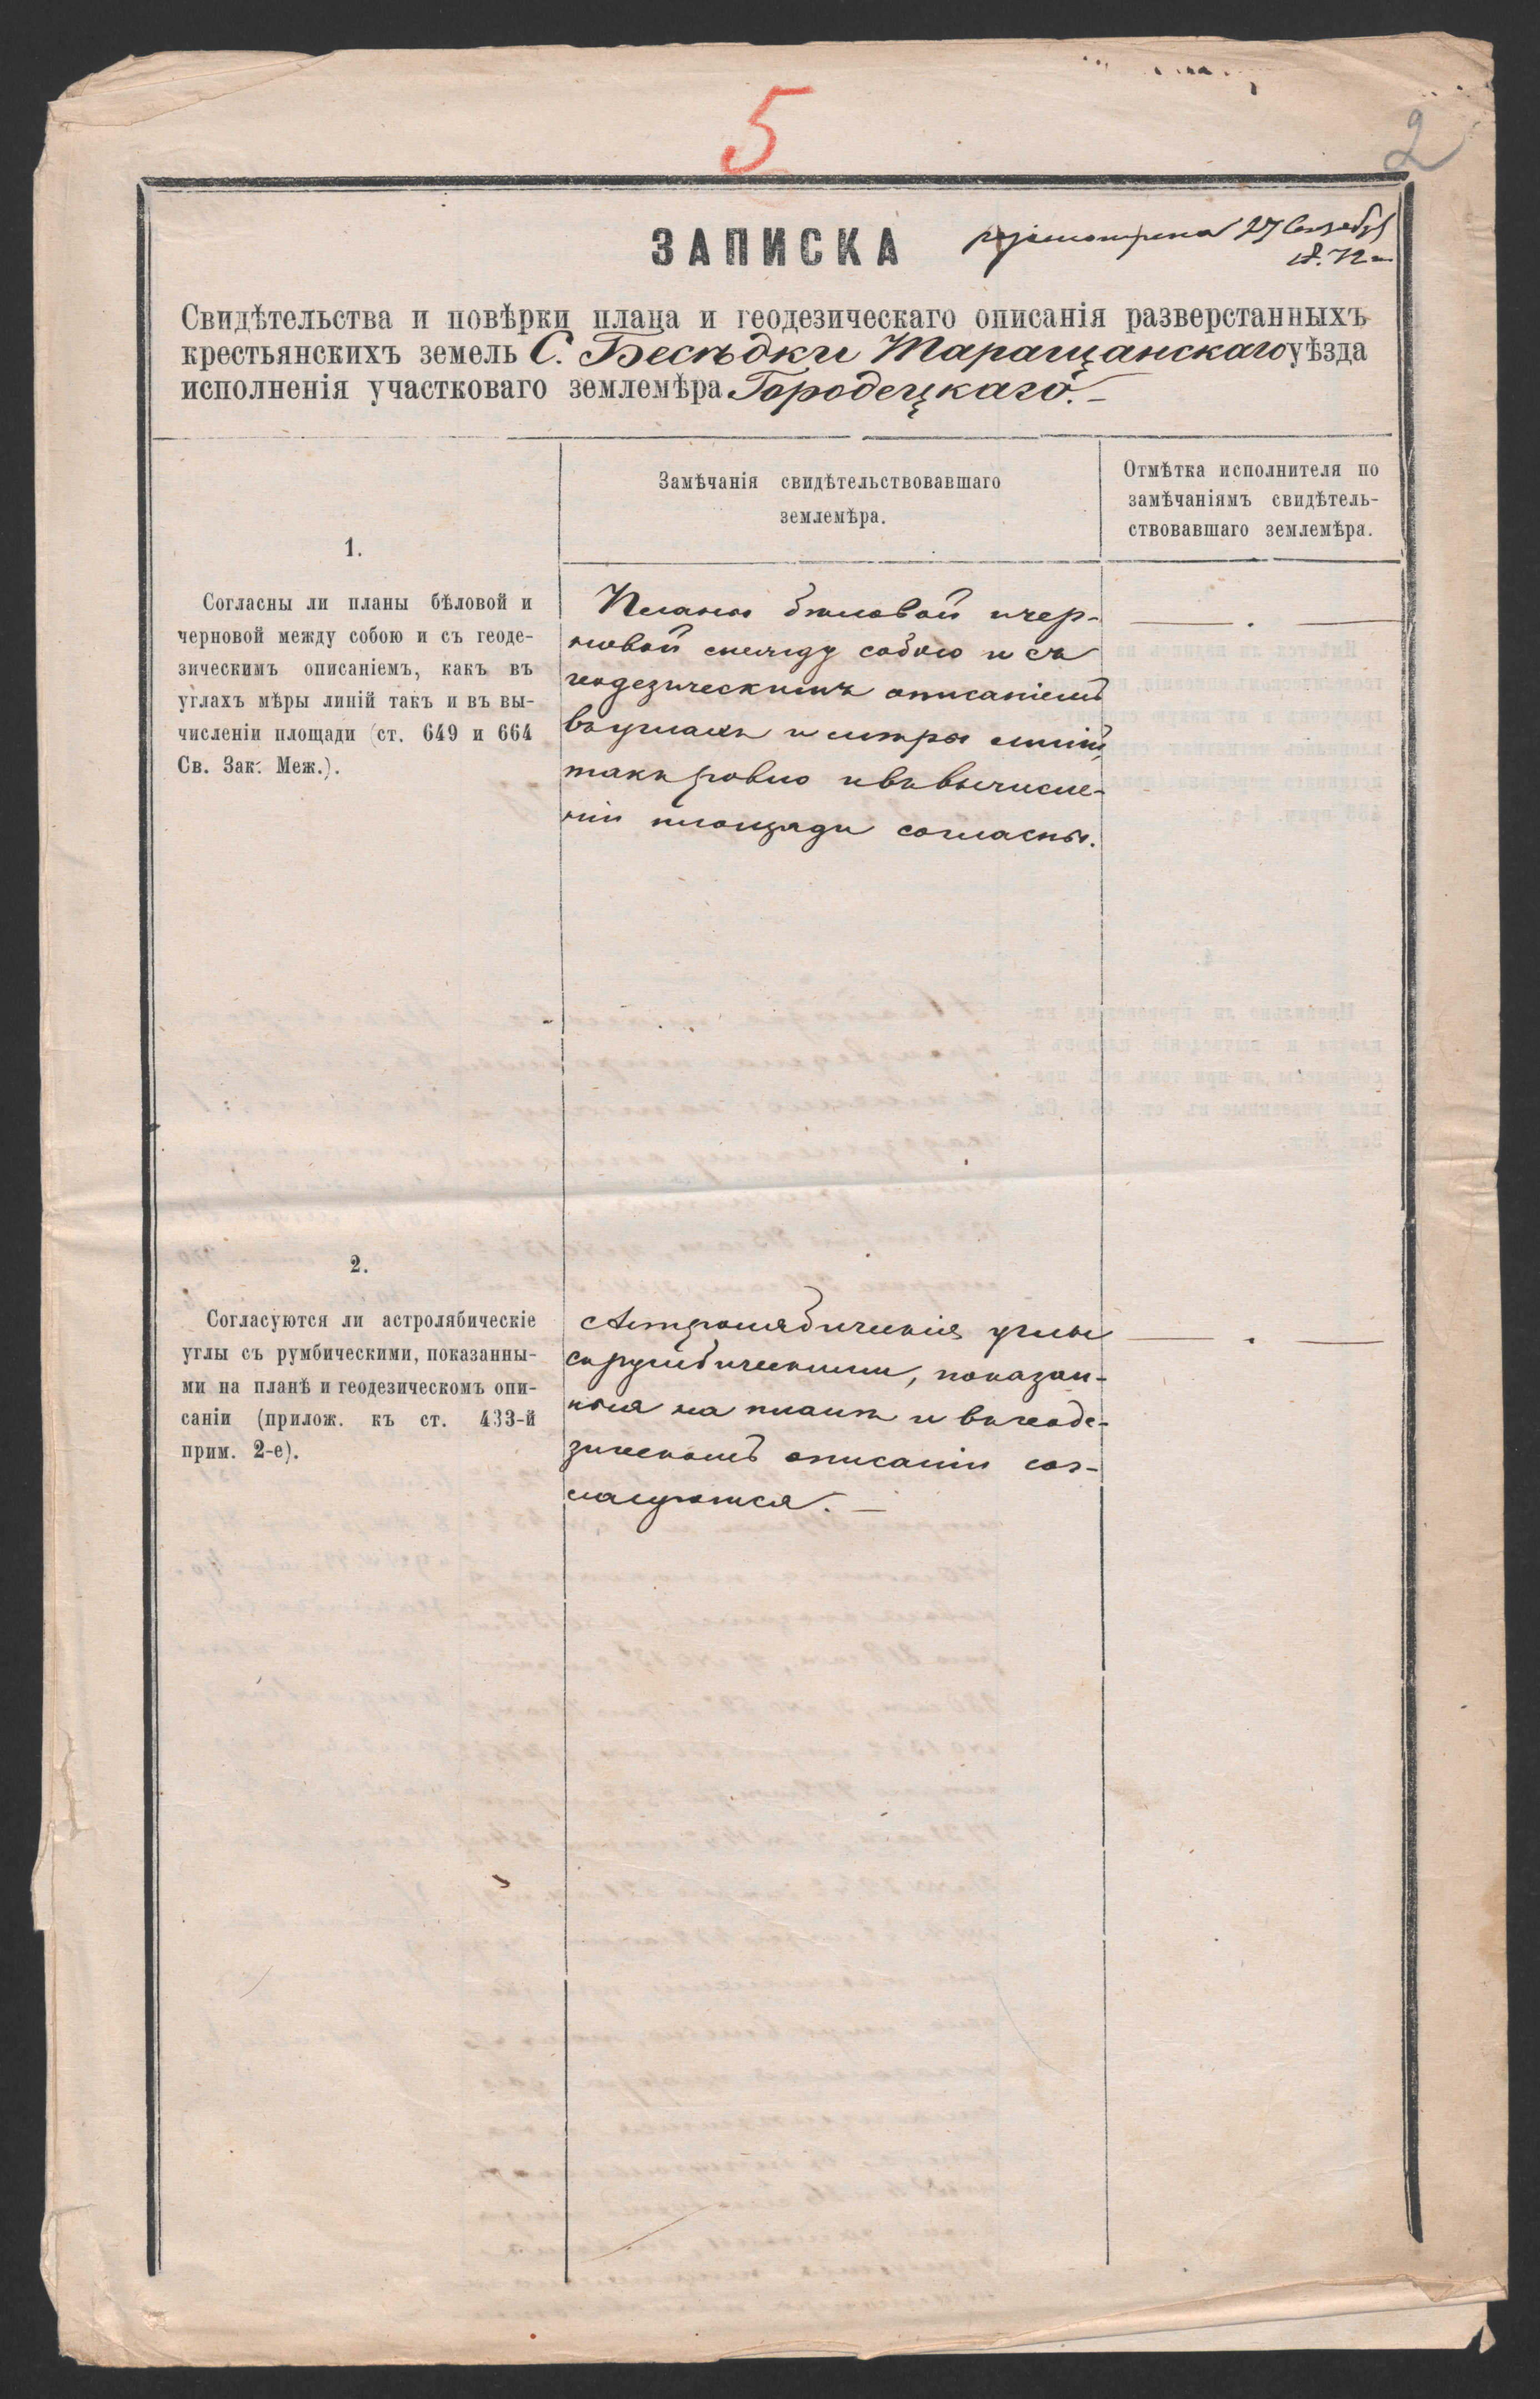 5
2
ЗАПИСКА
разсмотрена 27 Сентября
18.72 г
Свидѣтельства и повѣрки плана и геодезическаго описанія разверстанныхъ
крестьянскихъ земель С. Бесѣдки Таращанскаго уѣзда
исполненія участковаго землемѣра Городецкаго. –
Замѣчанія свидѣтельствовавшаго
землемѣра.
Отмѣтка исполнителя по
замѣчаніямъ свидѣтель-
ствовавшаго землемѣра.
1.
Согласны ли планы бѣловой и
черновой между собою и съ геоде-
зическимъ описаніемъ, какъ въ
углахъ мѣры линій такъ и въ вы-
численіи площади (ст. 649 и 664
Св. Зак. Меж.).
Планы бѣловой и чер-
новой между собою и съ
геодезическимъ описаніемъ
въ углахъ и мѣры линій,
такъ ровно и въ вычисле-
ніи площади согласны.
— . —
2.
Согласуются ли астролябическіе
углы съ румбическими, показанны-
ми на планѣ и геодезическомъ опи-
саніи (прилож. къ ст. 433-й
прим. 2-е).
Астролябическія углы
съ румбическими, показан-
ныя на планѣ и въ геоде-
зическомъ описаніи сог-
ласуются. —
— . —